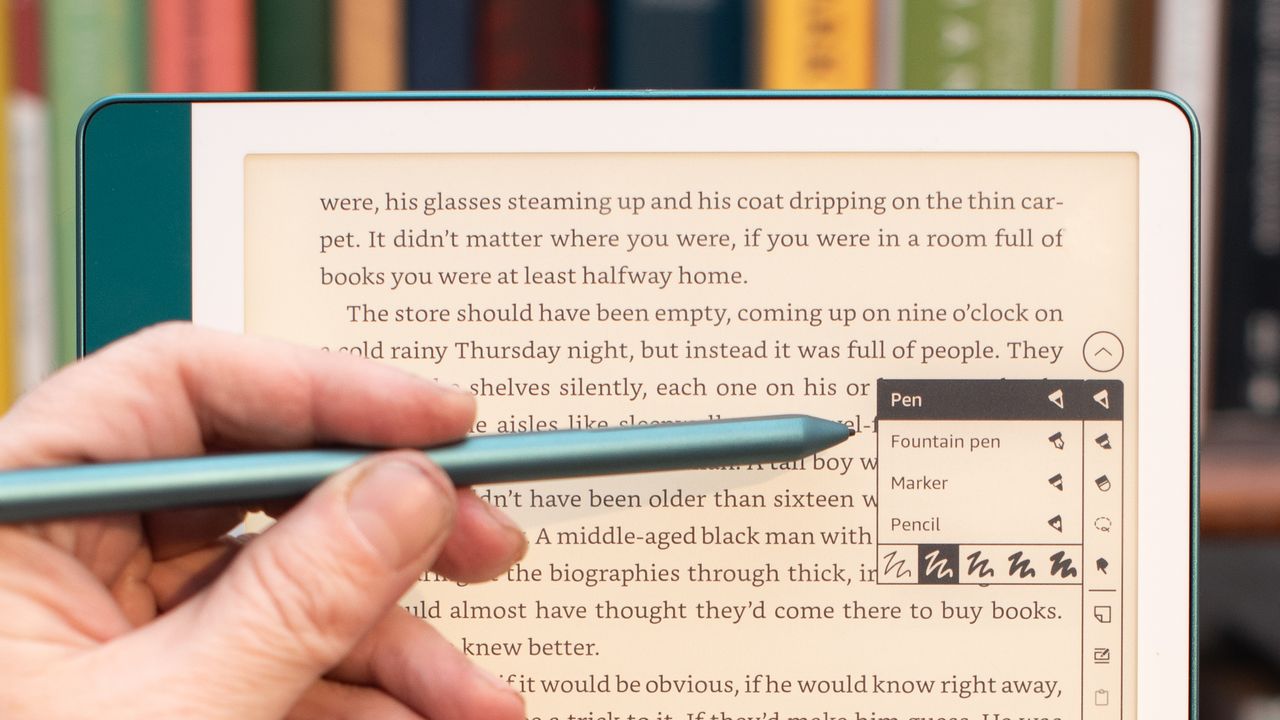 were, his glasses steaming up and his coat dripping on the thin car-
pet. It didn’t matter where you were, if you were in a room full of
books you were at least halfway home.
The store should have been empty, coming up on nine o’clock on
cold rainy Thursday night, but instead it was full of people. They
shelves silently, each one on his or
aisles like
Pen
Fountain pen
Marker
Pencil
A tall boy
have been older than sixteen
A middle-aged black man with
the biographies through thick,
almost have thought they’d come there to buy books.
knew better.
if it would be obvious, if he would know right away,
a trick to it. If they’d make him guess. He was